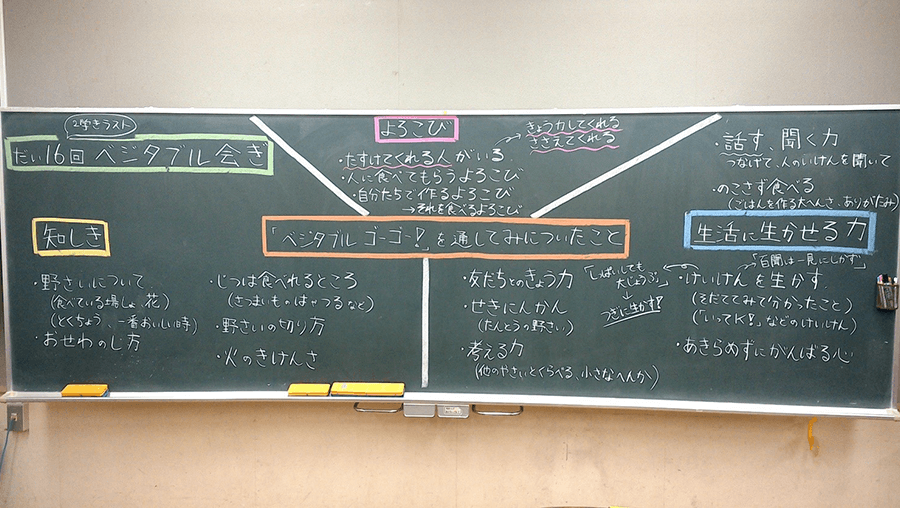 2学きラスト
だい16回 ベジタブル会ぎ
よろこび
・たすけてくれる人がいる
きょう力してくれる
ささえてくれる
・人に食べてもらうよろこび
・自分たちで作るよろこび
→それを食べるよろこび
・話す、聞く力
つなげて、人のいけんを聞いて
・のこさず食べる
(ごはんを作る大へんさ、ありがたみ)
知しき
「ベジタブル ゴーゴー!」を通してみについたこと
生活に生かせる力
・野さいについて
(食べている場しょ、花)
(とくちょう、一番おいしい時)
・おせわのし方
・じつは食べれるところ
(さつまいものはやつるなど)
・野さいの切り方
・火のきけんさ
・友だちとのきょう力
・せきにんかん
(たんとうの野さい)
・考える力
(他のやさいとくらべる、小さなへんか)
「しっぱいしても
大じょうぶ」
↓
つぎに生かす!
「百聞は一見にしかず」
・けいけんを生かす
(そだててみて分かったこと)
(「いってK!」などのけいけん)
・あきらめずにがんばる心